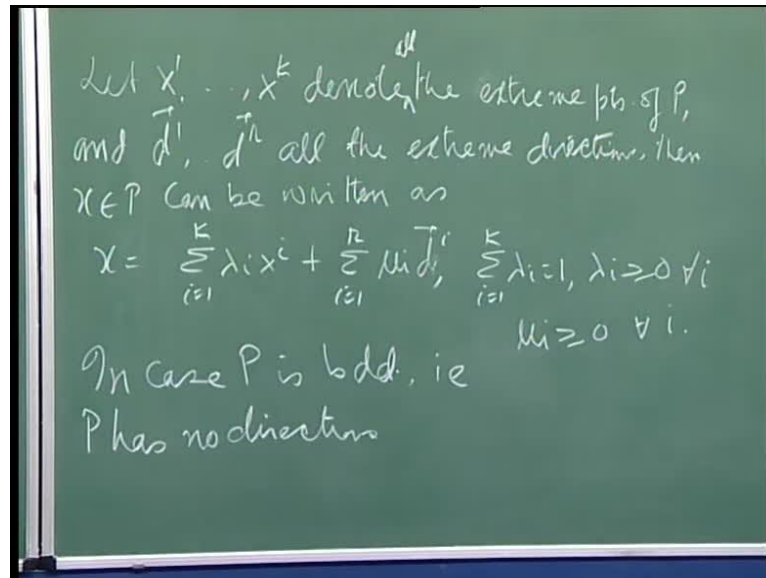 all
Let X¹, ..., x^k denote the extreme pts. of P,
and d⃗¹, .. d⃗ʳ all the extreme direction, then
x ∈ P can be written as
x = Σ_{i=1}^{K} λi xⁱ + Σ_{i=1}^{r} μi d⃗ⁱ, Σ_{i=1}^{K} λi = 1, λi ≥ 0 ∀ i
μi ≥ 0 ∀ i.
In case P is bdd, ie
P has no directions